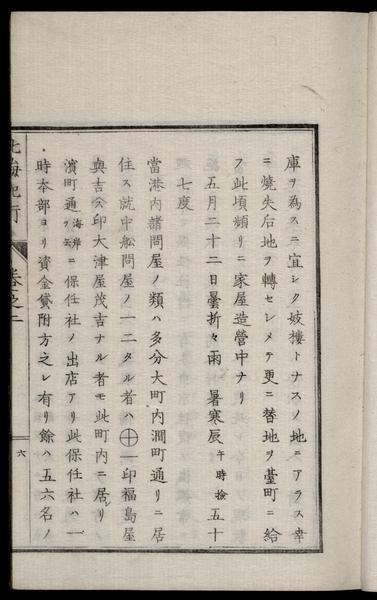 庫ヲ為スニ宜シク妓樓トナスノ地ニアラス幸
ニ燒失后地ヲ轉セシメテ更ニ替地ヲ臺町ニ給
フ此頃頻リニ家屋造營中ナリ
五月二十二日曇折々雨 暑寒辰午時撿五十
七度
當港内諸問屋ノ類ハ多分大町内澗町通リニ居
住ス就中舩問屋ノ一二タル者ハ㊉一印福島屋
與吉仌印大津屋茂吉ナル者モ此町内ニ居レリ
濱町通リ海岸ヲ云ニ保任社ノ出店アリ此保任社ハ一
時本部ヨリ資金貸附方之レ有リ餘ハ五六名ノ
北海紀行 卷之二
六